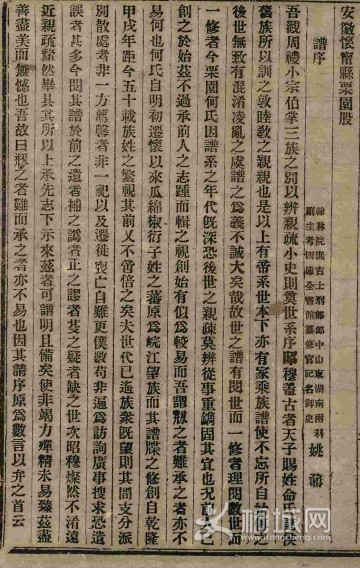 安徽懷甯縣栗園股
譜序
翰林院庶吉士刑部郎中山東湖南兩科
副主考四庫全書館纂修官記名御史 姚鼐
吾觀周禮小宗伯掌三族之別以辨親疏小史則奠世系序昭穆蓋古者天子賜姓命氏諸侯
舊族所以訓之敦睦敎之親親也是以上有帝系世本下亦有家乘族譜使不忘所自始
後世無致有混淆凌亂之虞譜之爲義不誠大矣哉故世之譜有閱世而一修者理閱數世而
一修者今栗園何氏因譜系之年代旣深恐後世之親疎莫辨從事重鐫固其宜也况
創之於始茲不過承前人之志踵而輯之視創始有似爲較易而吾謂剏之者難承之者亦不
易何也何氏自明初遷懷以來瓜綿椒衍子姓之蕃原爲皖江望族而其譜牒之修創自乾隆
甲戌年距今五十載族姓之繁視其前又不啻倍之矣夫世代已遙族衆旣望則其間支分派
別散處者非一方經馨者非一祀以及遷徙喪亡自難更僕數苟非遍爲訪詢廣事搜求恐遺
誤者甚多今閱其譜於前之遺者補之譌者正之謬者芟之疑者缺之世次昭穆燦然不淆遠
近親疏釐然畢具其所以上承先志下示來茲者可謂明且備矣使非竭力殫精未易臻茲盡
善盡美而無憾也吾故曰剏之者難而承之者亦不易也因其請序原爲數言以弁之首云
桐城网